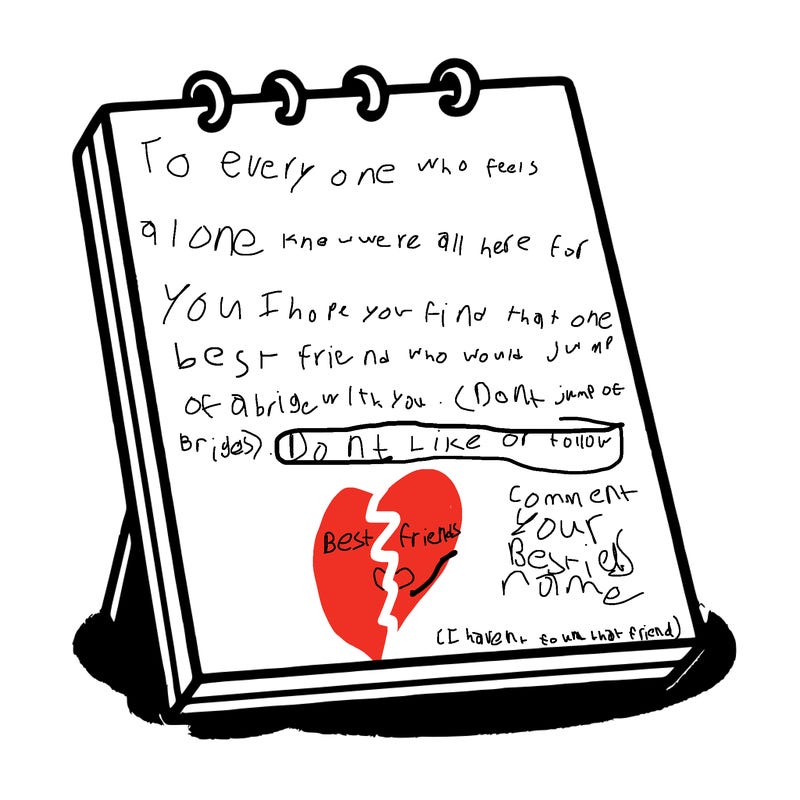 To every one who feels
alone know were all here for
You I hope you find that one
best friend who would jump
of a brige with you. (Dont jump of
Briges). Dont Like or follow
Best friends
Comment
Your
Besties
name
(I havent found that friend)